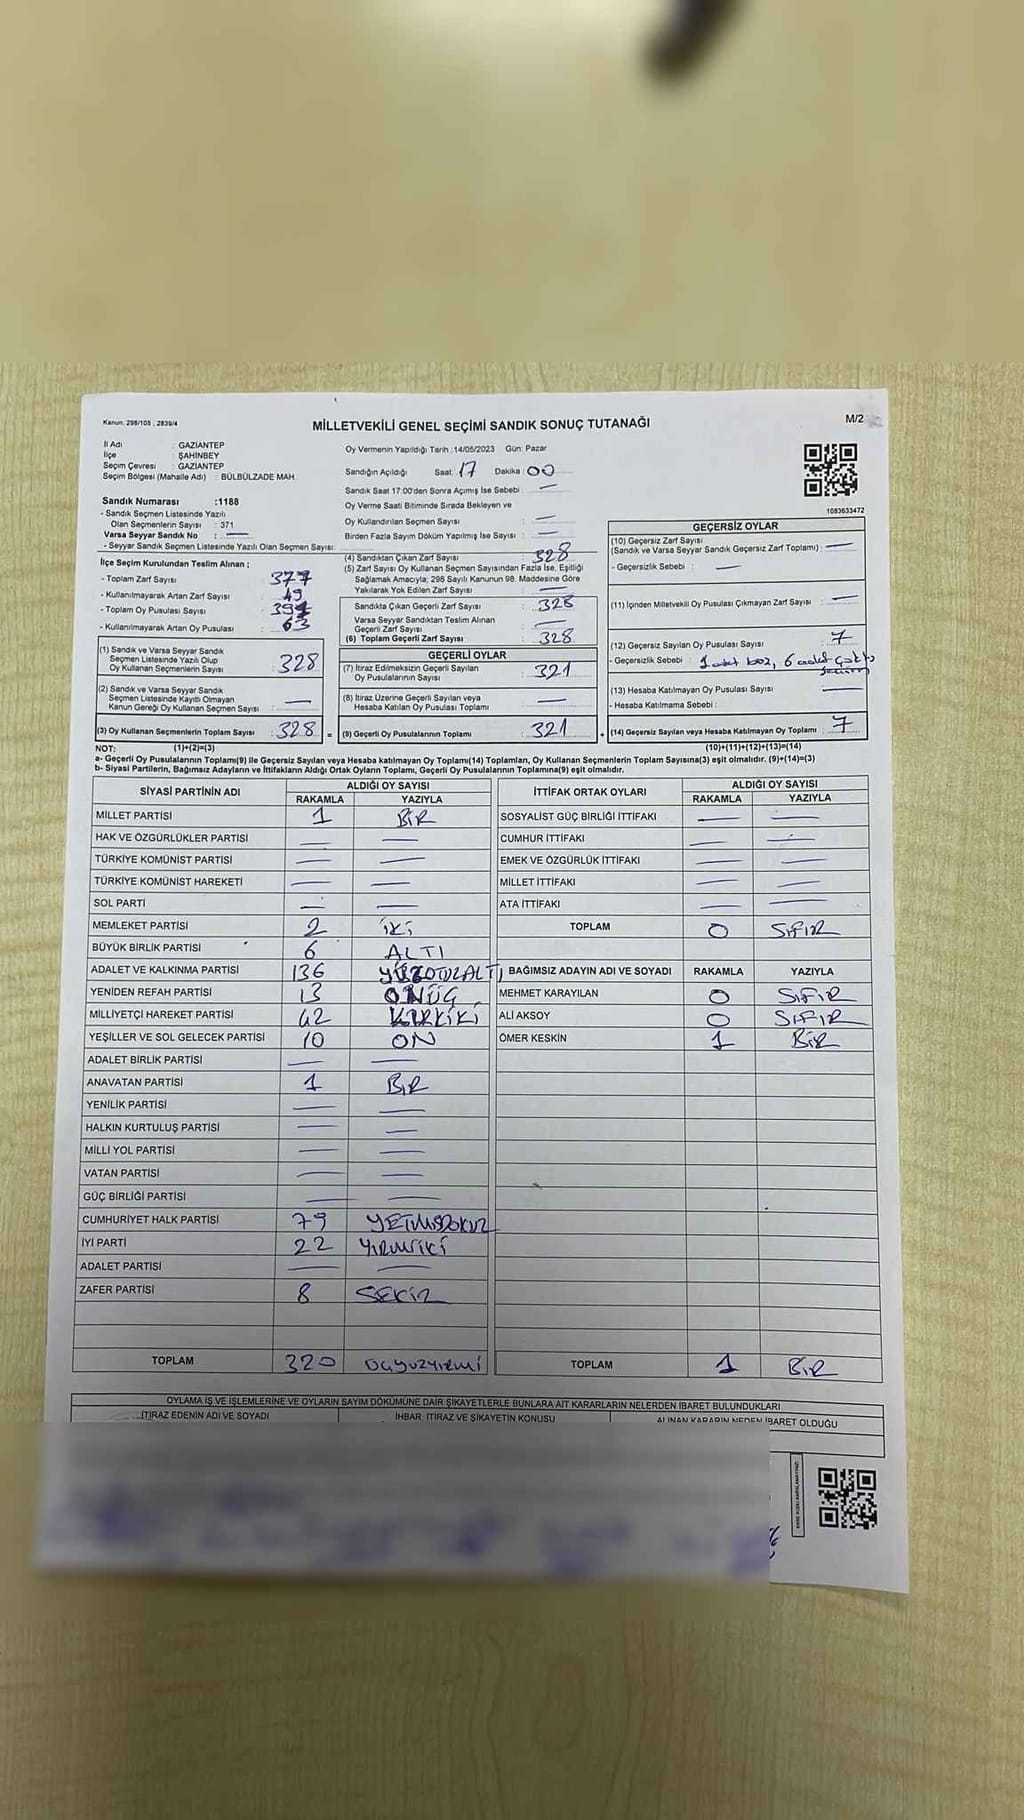 Kanun: 298/105 ; 2839/4
MİLLETVEKİLİ GENEL SEÇİMİ SANDIK SONUÇ TUTANAĞI
M/2
İl Adı : GAZİANTEP
İlçe : ŞAHİNBEY
Seçim Çevresi : GAZİANTEP
Seçim Bölgesi (Mahalle Adı) : BÜLBÜLZADE MAH
Sandık Numarası :1188
- Sandık Seçmen Listesinde Yazılı
Olan Seçmenlerin Sayısı : 371
Varsa Seyyar Sandık No : —
- Seyyar Sandık Seçmen Listesinde Yazılı Olan Seçmen Sayısı:
Oy Vermenin Yapıldığı Tarih :14/05/2023 Gün: Pazar
Sandığın Açıldığı Saat: 17 Dakika: 00
Sandık Saat 17.00'den Sonra Açımış İse Sebebi : —
Oy Verme Saati Bitiminde Sırada Bekleyen ve
Oy Kullandırılan Seçmen Sayısı : —
Birden Fazla Sayım Döküm Yapılmış İse Sayısı : —
1083633472
İlçe Seçim Kurulundan Teslim Alınan ;
- Toplam Zarf Sayısı : 377
- Kullanılmayarak Artan Zarf Sayısı : 49
- Toplam Oy Pusulası Sayısı :
- Kullanılmayarak Artan Oy Pusulası : 63
(1) Sandık ve Varsa Seyyar Sandık
Seçmen Listesinde Yazılı Olup
Oy Kullanan Seçmenlerin Sayısı : 328
(2) Sandık ve Varsa Seyyar Sandık
Seçmen Listesinde Kayıtlı Olmayan
Kanun Gereği Oy Kullanan Seçmen Sayısı : —
(3) Oy Kullanan Seçmenlerin Toplam Sayısı : 328 =
(4) Sandıktan Çıkan Zarf Sayısı : 328
(5) Zarf Sayısı Oy Kullanan Seçmen Sayısından Fazla İse, Eşitliği
Sağlamak Amacıyla; 298 Sayılı Kanunun 98. Maddesine Göre
Yakılarak Yok Edilen Zarf Sayısı : —
Sandıkta Çıkan Geçerli Zarf Sayısı : 328
Varsa Seyyar Sandıktan Teslim Alınan
Geçerli Zarf Sayısı : —
(6) Toplam Geçerli Zarf Sayısı : 328
GEÇERLİ OYLAR
(7) İtiraz Edilmeksizin Geçerli Sayılan
Oy Pusulalarının Sayısı : 321
(8) İtiraz Üzerine Geçerli Sayılan veya
Hesaba Katılan Oy Pusulası Toplamı : —
(9) Geçerli Oy Pusulalarının Toplamı : 321 +
GEÇERSİZ OYLAR
(10) Geçersiz Zarf Sayısı
(Sandık ve Varsa Seyyar Sandık Geçersiz Zarf Toplamı) : —
- Geçersizlik Sebebi : —
(11) İçinden Milletvekili Oy Pusulası Çıkmayan Zarf Sayısı : —
(12) Geçersiz Sayılan Oy Pusulası Sayısı : 7
- Geçersizlik Sebebi : 1 adet boş, 6 adet çoklu
(13) Hesaba Katılmayan Oy Pusulası Sayısı : —
- Hesaba Katılmama Sebebi :
(14) Geçersiz Sayılan veya Hesaba Katılmayan Oy Toplamı : 7
NOT: (1)+(2)=(3) (10)+(11)+(12)+(13)=(14)
a- Geçerli Oy Pusulalarının Toplamı(9) ile Geçersiz Sayılan veya Hesaba katılmayan Oy Toplamı(14) Toplamları, Oy Kullanan Seçmenlerin Toplam Sayısına(3) eşit olmalıdır. (9)+(14)=(3)
b- Siyasi Partilerin, Bağımsız Adayların ve İttifakların Aldığı Ortak Oyların Toplamı, Geçerli Oy Pusulalarının Toplamına(9) eşit olmalıdır.
SİYASİ PARTİNİN ADI ALDIĞI OY SAYISI
RAKAMLA YAZIYLA
MİLLET PARTİSİ 1 BİR
HAK VE ÖZGÜRLÜKLER PARTİSİ — —
TÜRKİYE KOMÜNİST PARTİSİ — —
TÜRKİYE KOMÜNİST HAREKETİ — —
SOL PARTİ — —
MEMLEKET PARTİSİ 2 İKİ
BÜYÜK BİRLİK PARTİSİ 6 ALTI
ADALET VE KALKINMA PARTİSİ 136 YÜZOTUZALTI
YENİDEN REFAH PARTİSİ 13 ONÜÇ
MİLLİYETÇİ HAREKET PARTİSİ 42 KIRKİKİ
YEŞİLLER VE SOL GELECEK PARTİSİ 10 ON
ADALET BİRLİK PARTİSİ — —
ANAVATAN PARTİSİ 1 BİR
YENİLİK PARTİSİ — —
HALKIN KURTULUŞ PARTİSİ — —
MİLLİ YOL PARTİSİ — —
VATAN PARTİSİ — —
GÜÇ BİRLİĞİ PARTİSİ — —
CUMHURİYET HALK PARTİSİ 79 YETMİŞDOKUZ
İYİ PARTİ 22 YİRMİİKİ
ADALET PARTİSİ — —
ZAFER PARTİSİ 8 SEKİZ
TOPLAM 320 ÜÇYÜZYİRMİ
İTTİFAK ORTAK OYLARI ALDIĞI OY SAYISI
RAKAMLA YAZIYLA
SOSYALİST GÜÇ BİRLİĞİ İTTİFAKI — —
CUMHUR İTTİFAKI — —
EMEK VE ÖZGÜRLÜK İTTİFAKI — —
MİLLET İTTİFAKI — —
ATA İTTİFAKI — —
TOPLAM 0 SIFIR
BAĞIMSIZ ADAYIN ADI VE SOYADI RAKAMLA YAZIYLA
MEHMET KARAYILAN 0 SIFIR
ALİ AKSOY 0 SIFIR
ÖMER KESKİN 1 BİR
TOPLAM 1 BİR
OYLAMA İŞ VE İŞLEMLERİNE VE OYLARIN SAYIM DÖKÜMÜNE DAİR ŞİKAYETLERLE BUNLARA AİT KARARLARIN NELERDEN İBARET BULUNDUKLARI
İTİRAZ EDENİN ADI VE SOYADI İHBAR, İTİRAZ VE ŞİKAYETİN KONUSU ALINAN KARARIN NEDEN İBARET OLDUĞU